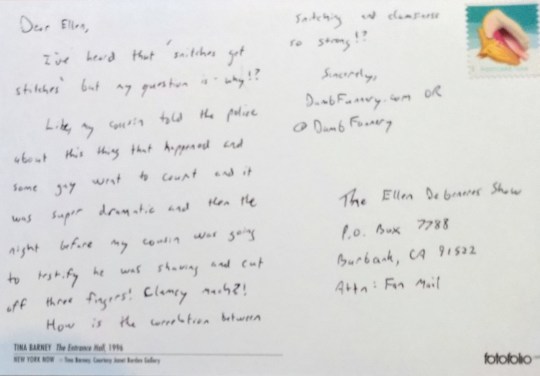 Dear Ellen,
I've heard that 'snitches get
stitches' but my question is - why!?
Like, my cousin told the police
about this thing that happened and
some guy went to court and it
was super dramatic and then the
night before my cousin was going
to testify he was shaving and cut
off three fingers! Clumsy much?!
How is the correlation between
snitching and clumsiness
so strong!?
Sincerely,
DumbFunnery.com OR
@DumbFunnery
The Ellen DeGeneres Show
P.O. Box 7788
Burbank, CA 91522
Attn: Fan Mail
TINA BARNEY The Entrance Hall, 1996
NEW YORK NOW © Tina Barney, Courtesy Janet Borden Gallery
fotofolio